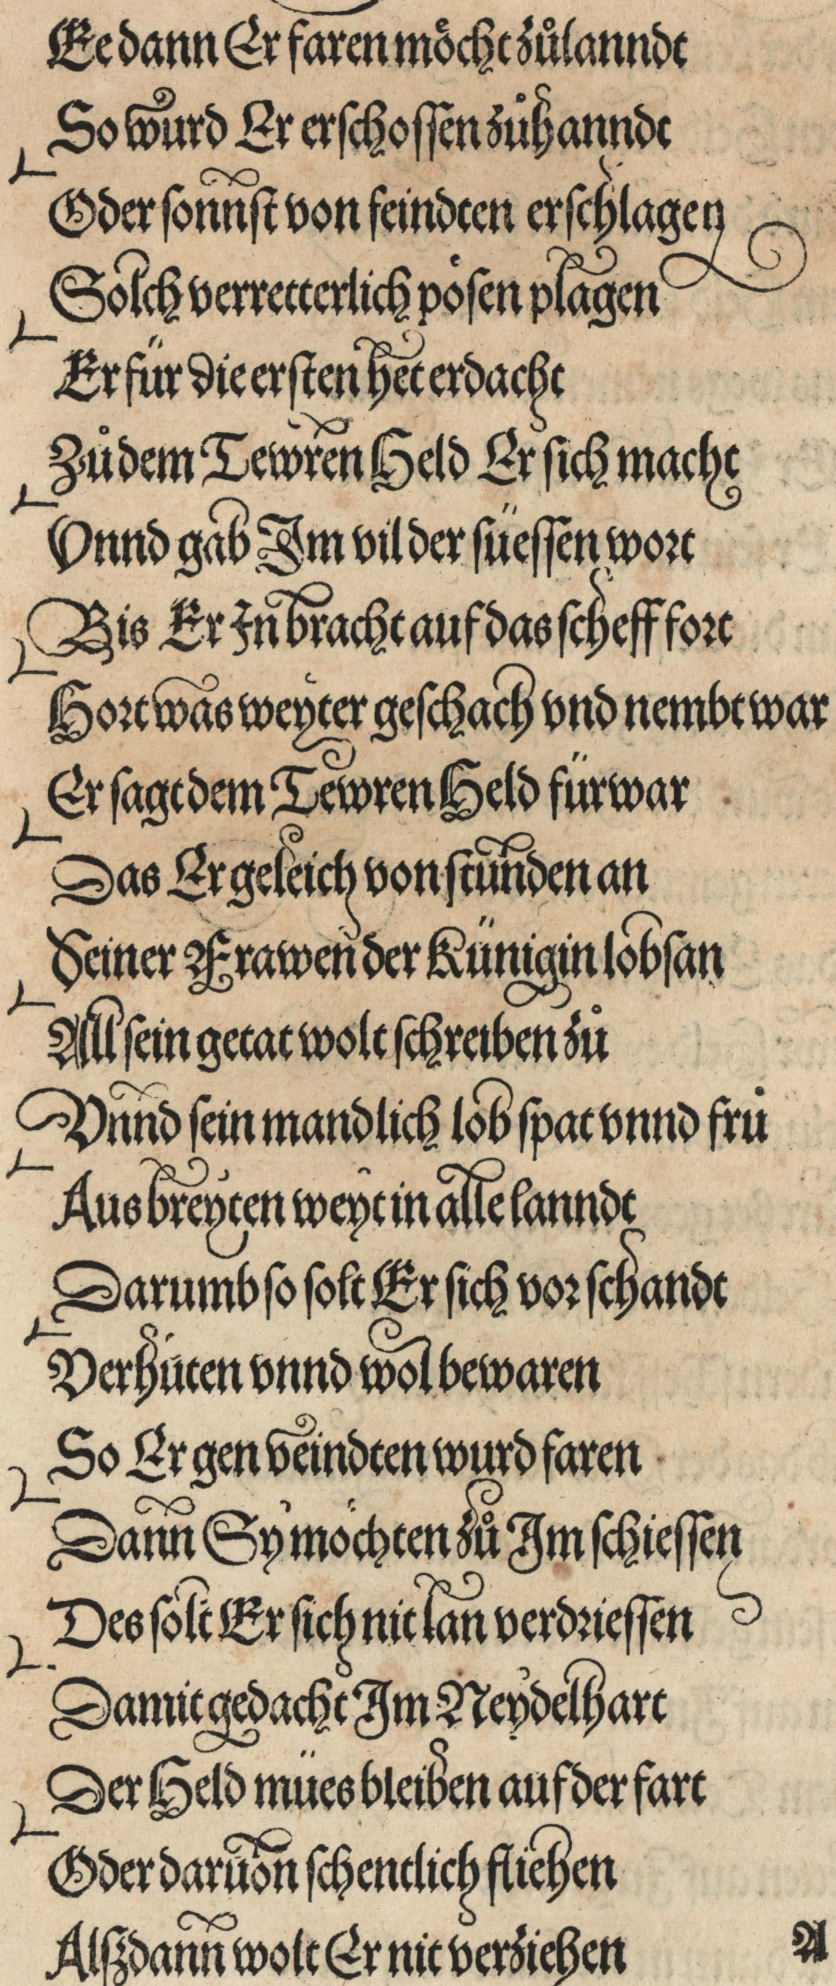 Ee dann Er faren möcht zůlanndt
So wurd Er erschossen zůhanndt
Oder sonnst von feindten erschlagen
Solch verretterlich pösen plagen
Er für die ersten het erdacht
Zů dem Tewren Held Er sich macht
Vnnd gab Im vil der süessen wort
Bis Er In bracht auf das scheff fort
Hort was weyter geschach vnd nembt war
Er sagt dem Tewren Held fürwar
Das Er geleich von stunden an
Seiner Frawen der Künigin lobsan
All sein getat wolt schreiben zů
Vnnd sein mandlich lob spat vnnd frů
Aus breyten weyt in alle lanndt
Darumb so solt Er sich vor schandt
Verhüten vnnd wol bewaren
So Er gen veindten wurd faren
Dann Sy möchten zů Im schiessen
Des solt Er sich nit lan verdriessen
Damit gedacht Im Neydelhart
Der Held mües bleiben auf der fart
Oder daruon schentlich fliehen
Alszdann wolt Er nit verziehen
A